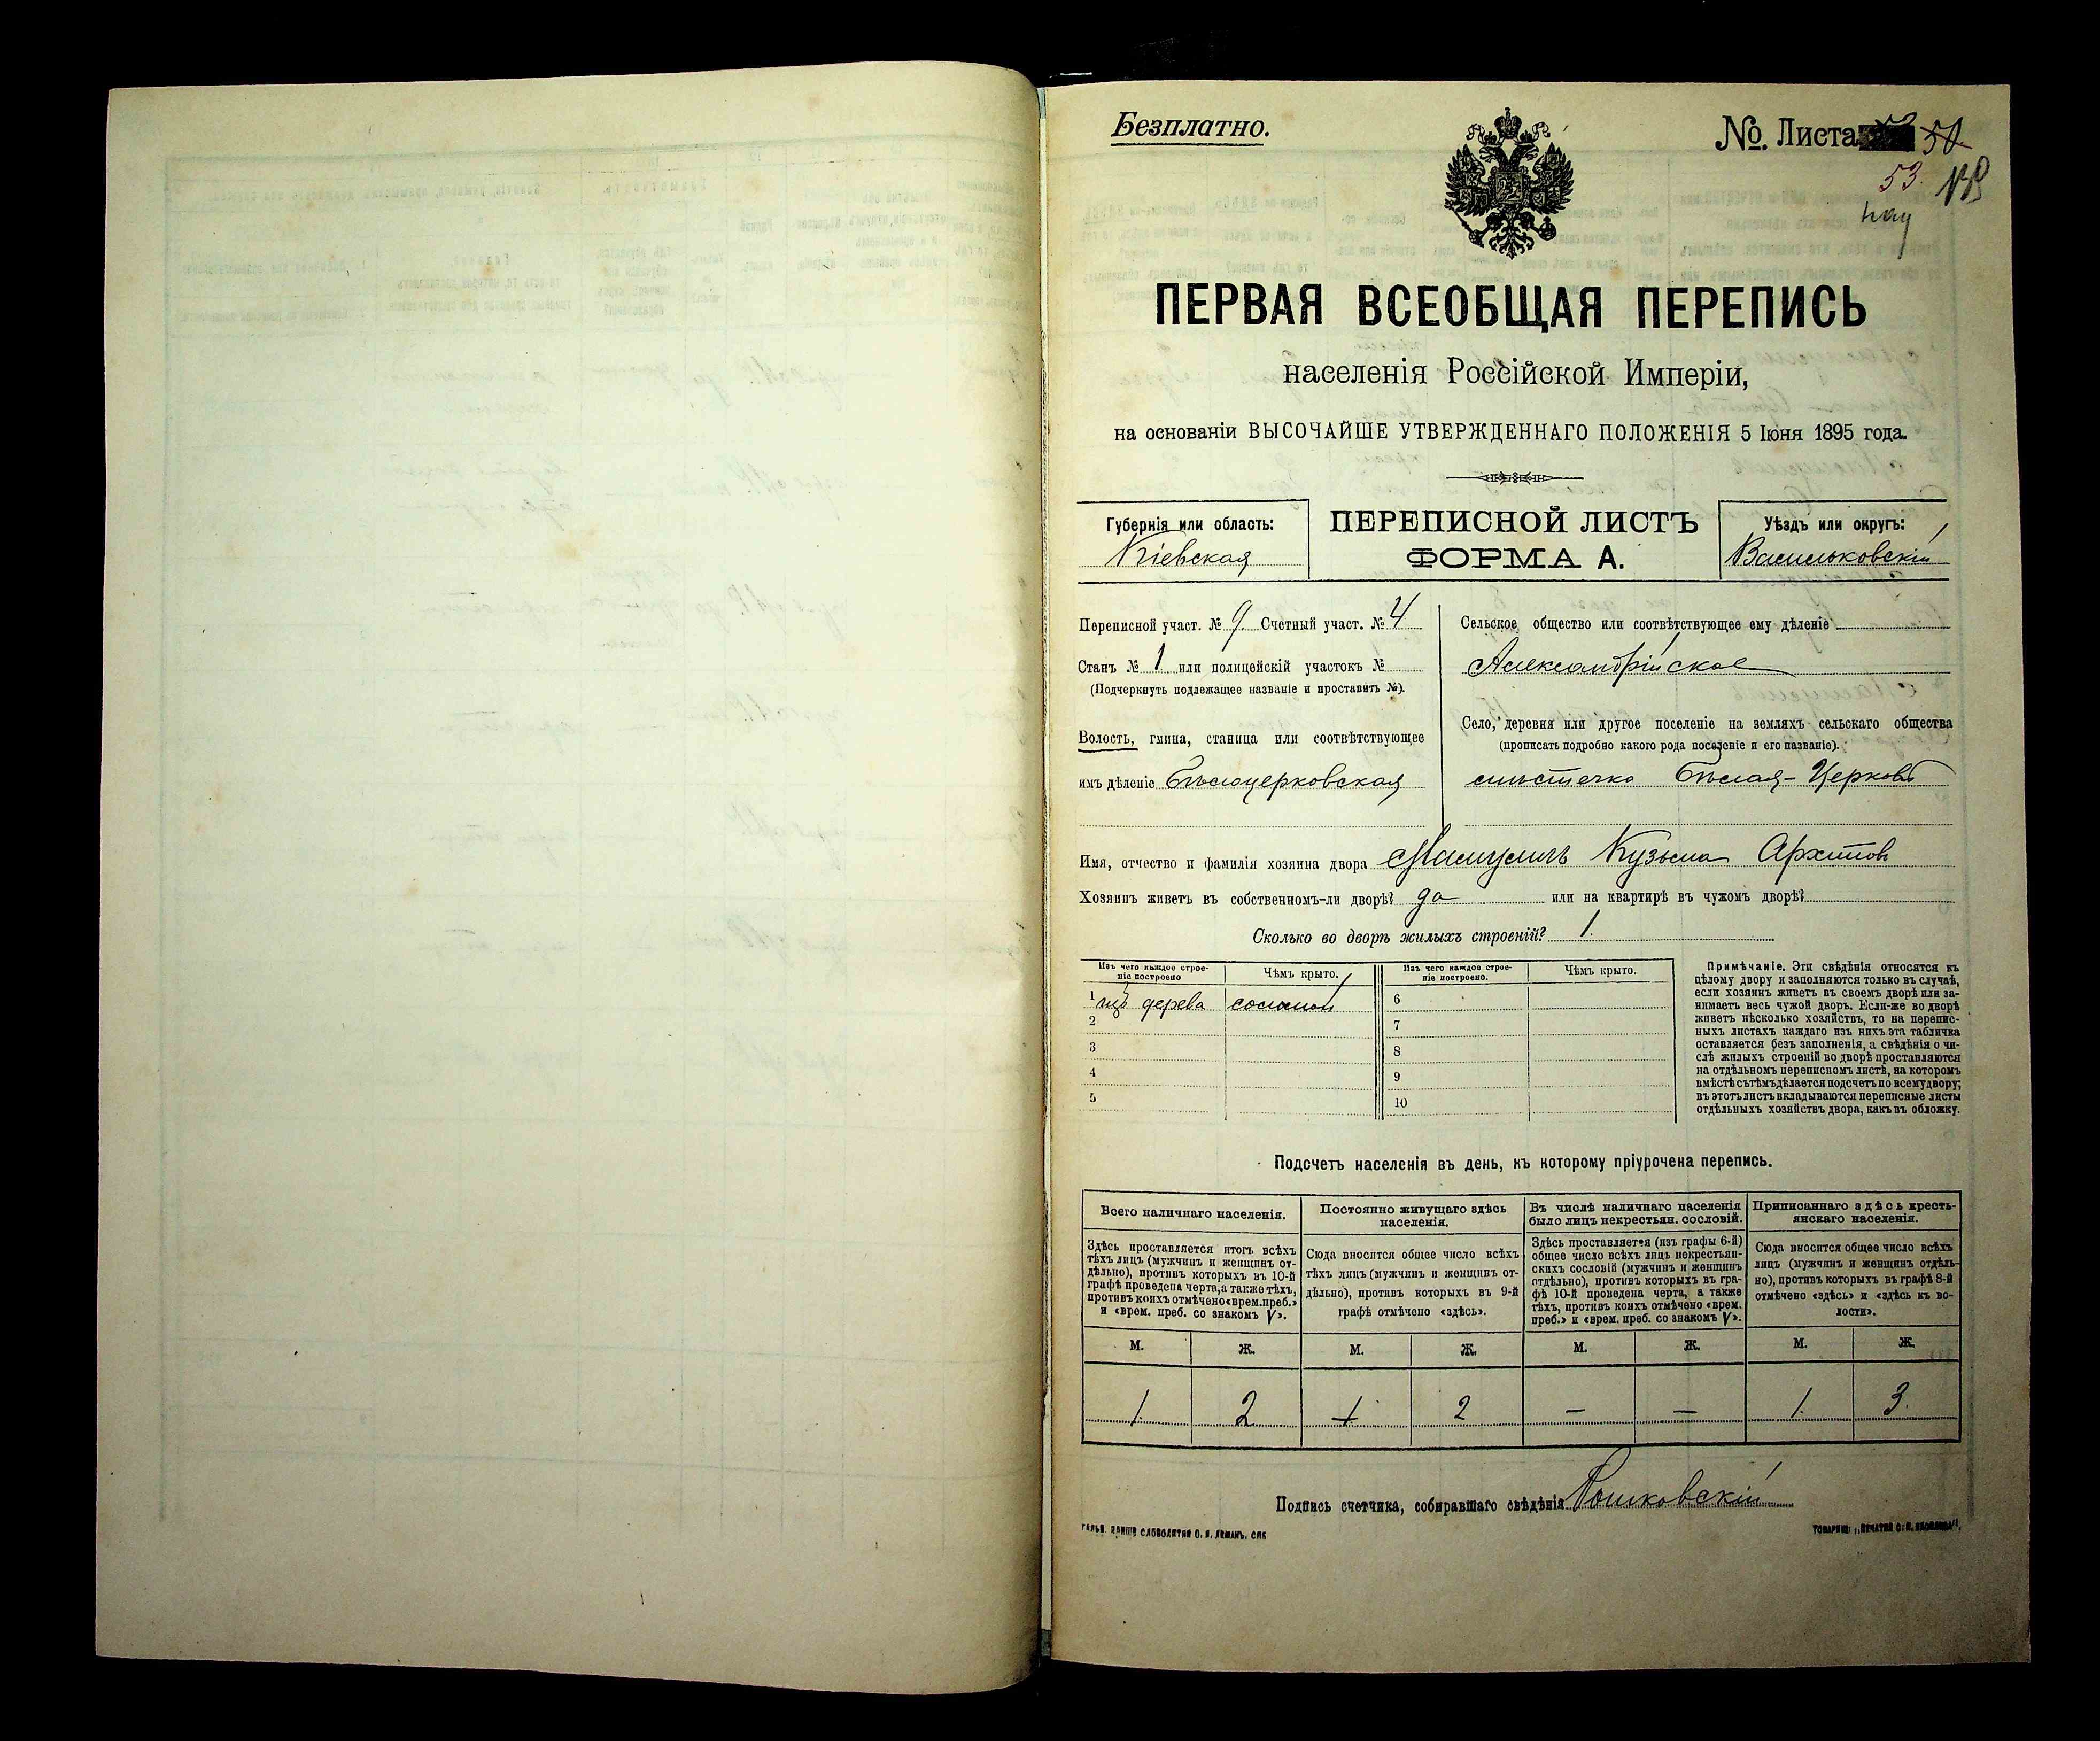 Безплатно.
№. Листа 50
53.
ПЕРВАЯ ВСЕОБЩАЯ ПЕРЕПИСЬ
населенія Россійской Имперіи,
на основаніи ВЫСОЧАЙШЕ УТВЕРЖДЕННАГО ПОЛОЖЕНІЯ 5 Іюня 1895 года.
Губернія или область:
Кіевская
ПЕРЕПИСНОЙ ЛИСТЪ
ФОРМА А.
Уѣздъ или округъ:
Васильковскій
Переписной участ. № 9 Счетный участ. № 4
Станъ № 1 или полицейскій участокъ №
(Подчеркнуть подлежащее названіе и проставить №).
Волость, гмина, станица или соотвѣтствующее
имъ дѣленіе Бѣлоцерковская
Сельское общество или соотвѣтствующее ему дѣленіе
Александрійское
Село, деревня или другое поселеніе на земляхъ сельскаго общества
(прописать подробно какого рода поселеніе и его названіе).
мѣстечко Бѣлая-Церковь
Имя, отчество и фамилія хозяина двора Кузьма Архипов
Хозяинъ живетъ въ собственномъ-ли дворѣ? да или на квартирѣ въ чужомъ дворѣ?
Сколько во дворѣ жилыхъ строеній? 1.
Изъ чего каждое строе-
ніе построено
Чѣмъ крыто.
Изъ чего каждое строе-
ніе построено.
Чѣмъ крыто.
1 изъ дерева соломой
2
3
4
5
6
7
8
9
10
Примѣчаніе. Эти свѣдѣнія относятся къ
цѣлому двору и заполняются только въ случаѣ,
если хозяинъ живетъ въ своемъ дворѣ или за-
нимаетъ весь чужой дворъ. Если-же во дворѣ
живетъ нѣсколько хозяйствъ, то на перепис-
ныхъ листахъ каждаго изъ нихъ эта табличка
оставляется безъ заполненія, а свѣдѣнія о чи-
слѣ жилыхъ строеній во дворѣ проставляются
на отдѣльномъ переписномъ листѣ, на которомъ
вмѣстѣ съ тѣмъ дѣлается подсчетъ по всему двору;
въ этотъ листъ вкладываются переписные листы
отдѣльныхъ хозяйствъ двора, какъ въ обложку.
Подсчетъ населенія въ день, къ которому пріурочена перепись.
Всего наличнаго населенія.
Здѣсь проставляется итогъ всѣхъ
тѣхъ лицъ (мужчинъ и женщинъ от-
дѣльно), противъ которыхъ въ 10-й
графѣ проведена черта, а также тѣхъ,
противъ коихъ отмѣчено «врем. преб.»
и «врем. преб. со знакомъ V».
Постоянно живущаго здѣсь
населенія.
Сюда вносится общее число всѣхъ
тѣхъ лицъ (мужчинъ и женщинъ от-
дѣльно), противъ которыхъ въ 9-й
графѣ отмѣчено «здѣсь».
Въ числѣ наличнаго населенія
было лицъ некрестьян. сословій.
Здѣсь проставляется (изъ графы 6-й)
общее число всѣхъ лицъ некрестьян-
скихъ сословій (мужчинъ и женщинъ
отдѣльно), противъ которыхъ въ гра-
фѣ 10-й проведена черта, а также
тѣхъ, противъ коихъ отмѣчено «врем.
преб.» и «врем. преб. со знакомъ V».
Приписаннаго здѣсь кресть-
янскаго населенія.
Сюда вносится общее число всѣхъ
лицъ (мужчинъ и женщинъ отдѣль-
но), противъ которыхъ въ графѣ 8-й
отмѣчено «здѣсь» и «здѣсь къ во-
лости».
М. Ж. М. Ж. М. Ж. М. Ж.
1 2 1 2 — — 1 3.
Подпись счетчика, собиравшаго свѣдѣнія